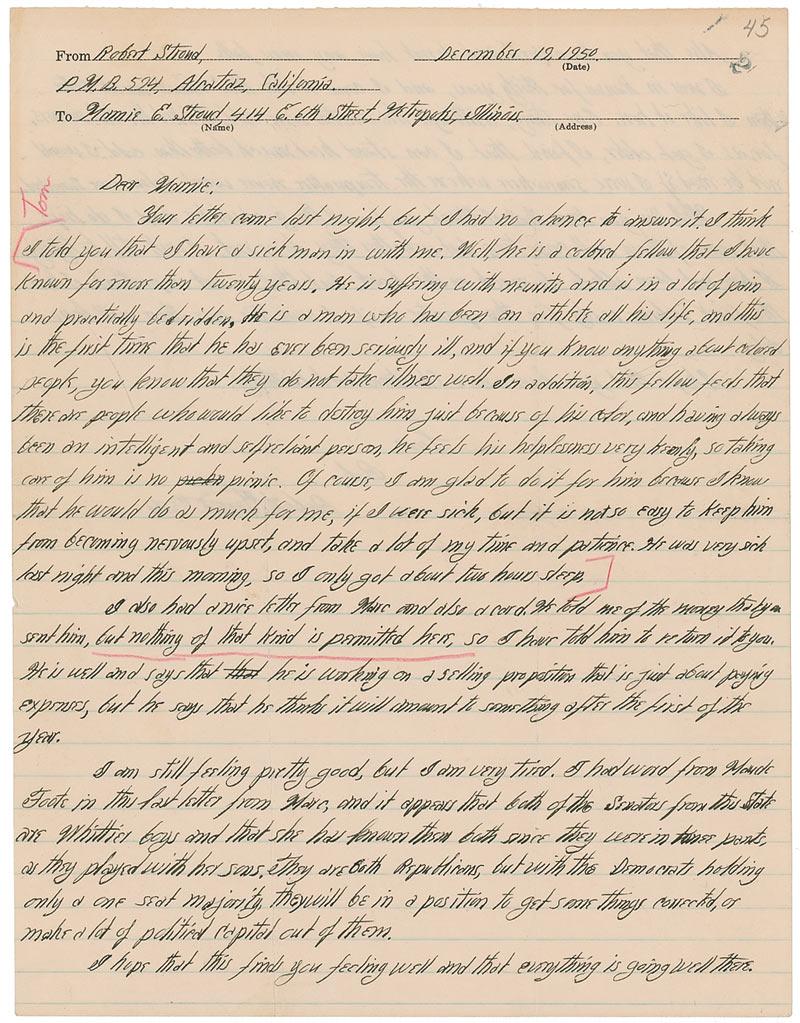 45
From Robert Stroud, December 19, 1950.
(Date)
P.M.B. 594, Alcatraz, California.
To Mamie E. Stroud 414 E. 6th Street, Metropolis, Illinois
(Name) (Address)
Tom
Dear Mamie:
Your letter came last night, but I had no chance to answer it. I think
I told you that I have a sick man in with me. Well, he is a colored fellow that I have
known for more than twenty years. He is suffering with neuritis and is in a lot of pain
and practically bedridden. He is a man who has been an athlete all his life, and this
is the first time that he has ever been seriously ill, and if you know anything about colored
people, you know that they do not take illness well. In addition, this fellow feels that
there are people who would like to destroy him just because of his color, and having always
been an intelligent and selfreliant person, he feels his helplessness very keenly, so taking
care of him is no picnic. Of course, I am glad to do it for him because I know
that he would do as much for me, if I were sick, but it is not so easy to keep him
from becoming nervously upset, and take a lot of my time and patience. He was very sick
last night and this morning, so I only got about two hours sleep.
I also had a nice letter from Marc and also a card. He told me of the money that you
sent him, but nothing of that kind is permitted here, so I have told him to return it to you.
He is well and says that that he is working on a selling proposition that is just about paying
expenses, but he says that he thinks it will amount to something after the first of the
year.
I am still feeling pretty good, but I am very tired. I had word from Maude
Foots in this last letter from Marc, and it appears that both of the Senators from this State
are Whittier boys and that she has known them both since they were in pants,
as they played with her sons. They are both Republicans, but with the Democrats holding
only a one seat majority, they will be in a position to get some things corrected, or
make a lot of political capital out of them.
I hope that this finds you feeling well and that everything is going well there.